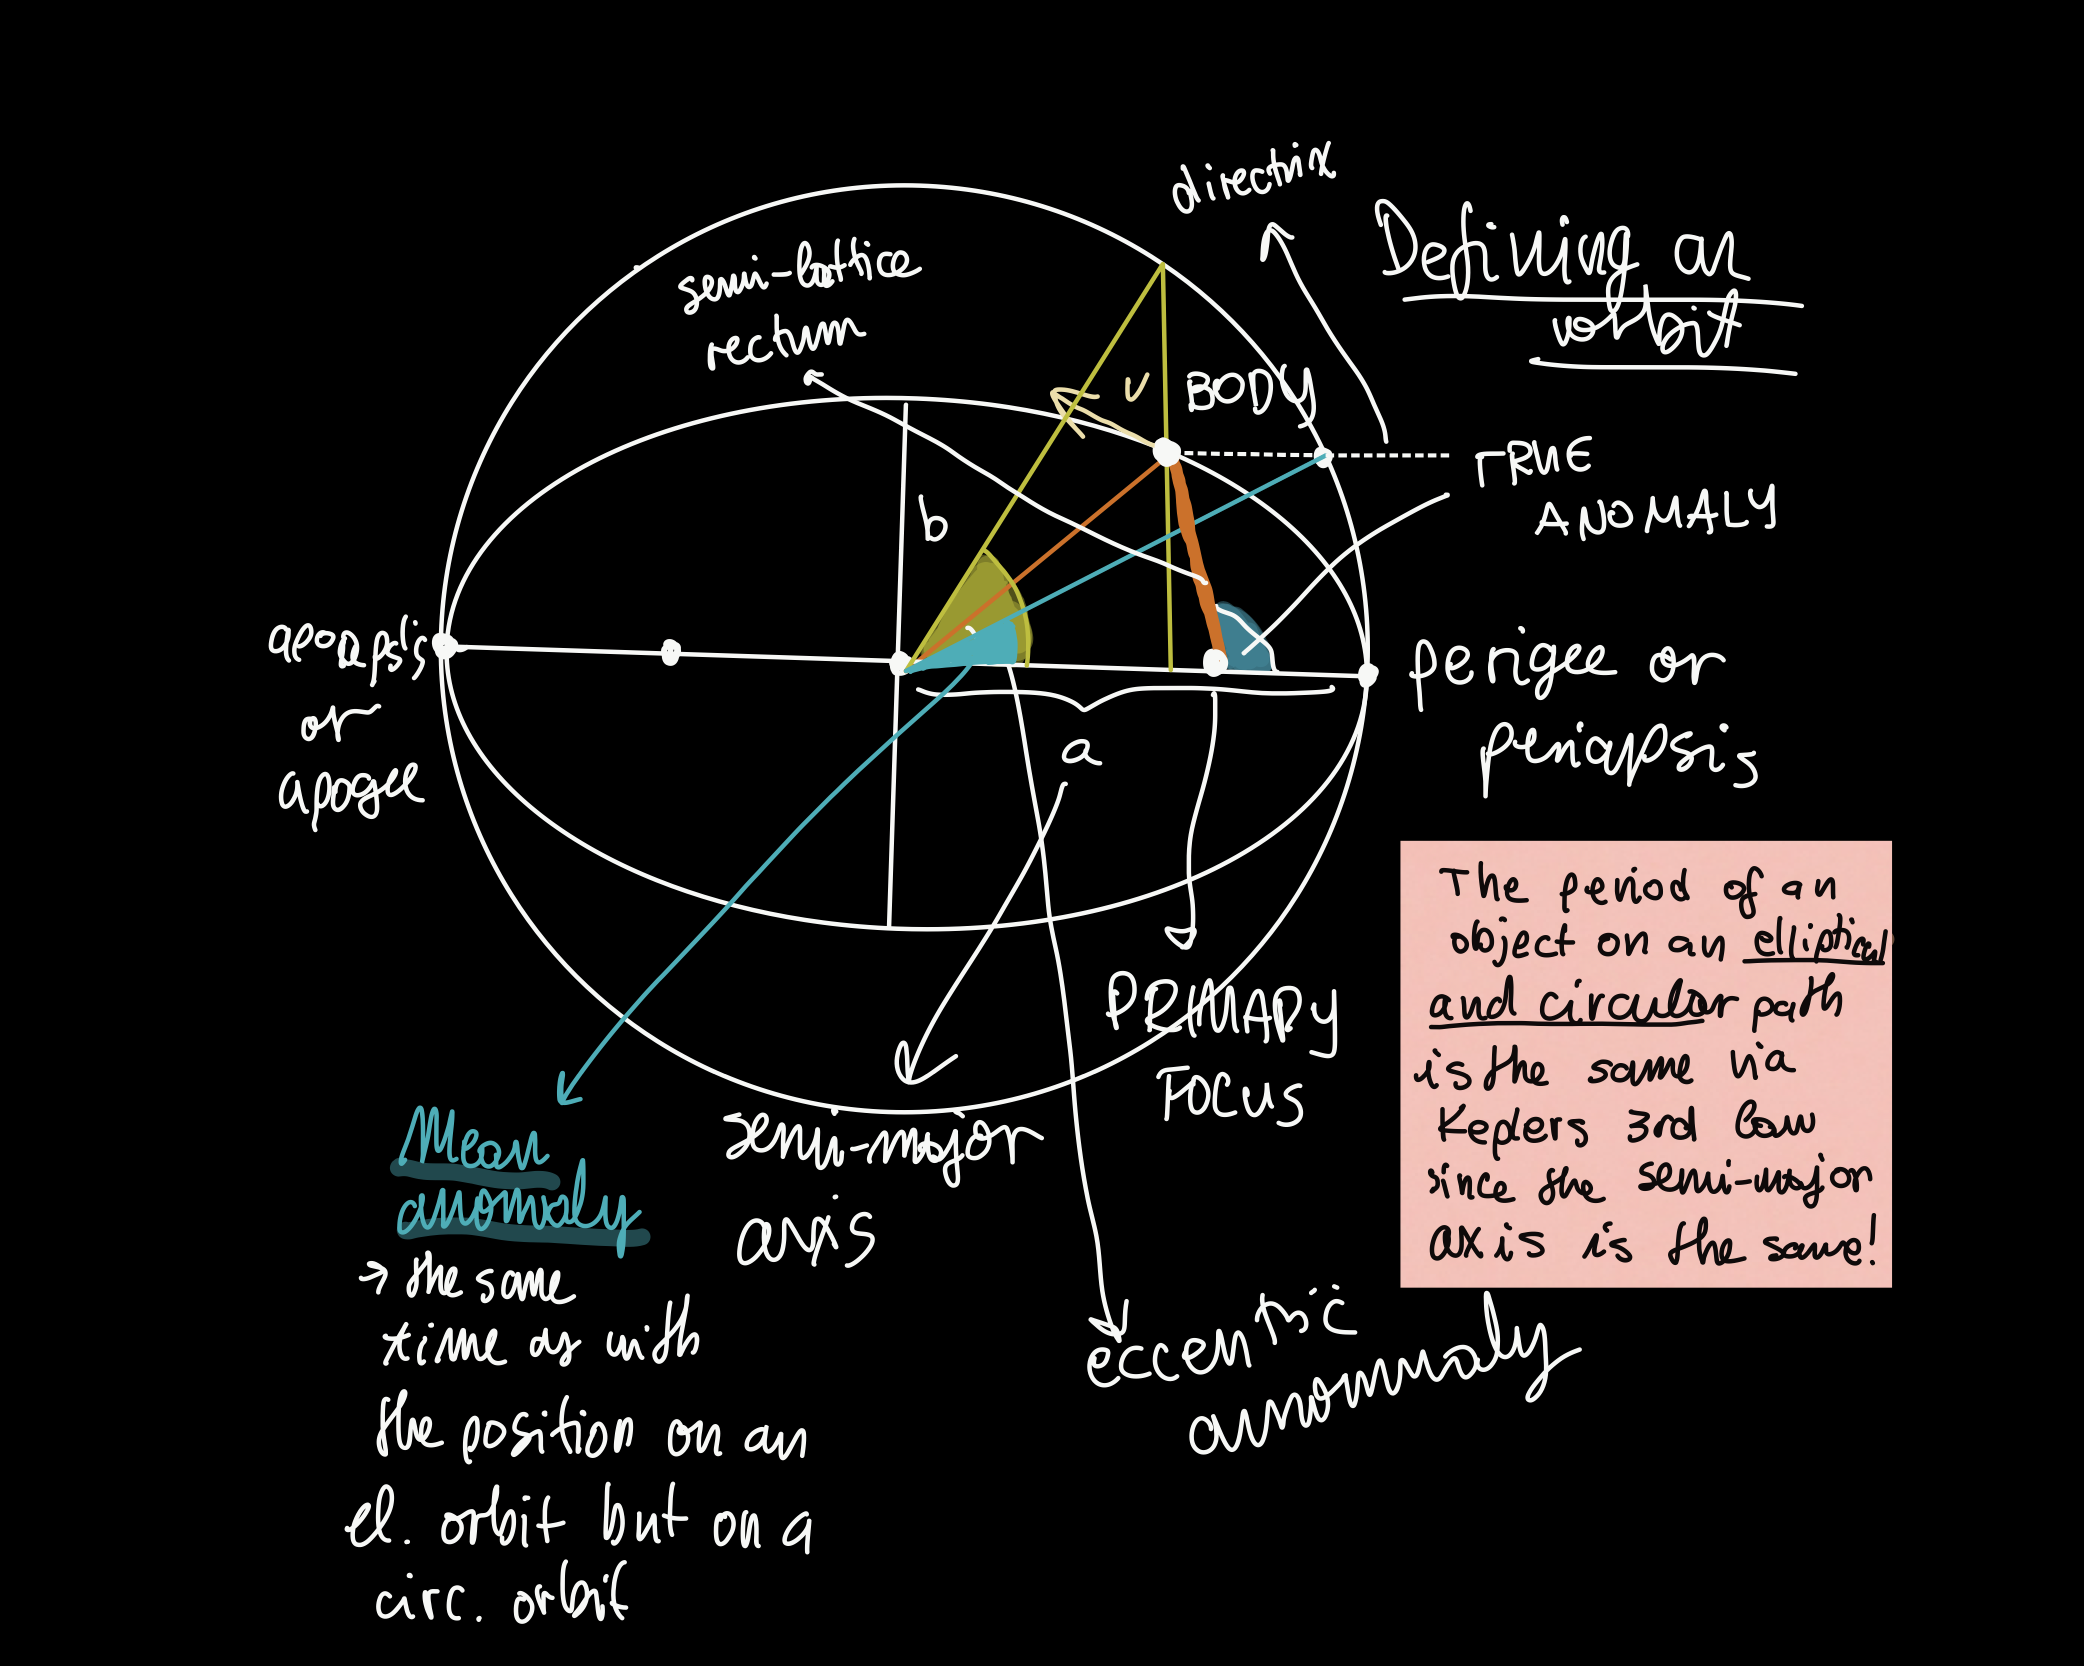 directrix
Defining an
orbit
semi-lattice
rectum
v
BODY
TRUE
ANOMALY
b
apoapsis
or
apogee
perigee or
periapsis
a
PRIMARY
FOCUS
semi-major
axis
eccentric
anommaly
Mean
anomaly
→ the same
time as with
the position on an
el. orbit but on a
circ. orbit
The period of an
object on an elliptical
and circular path
is the same via
Keplers 3rd law
since the semi-major
axis is the same!